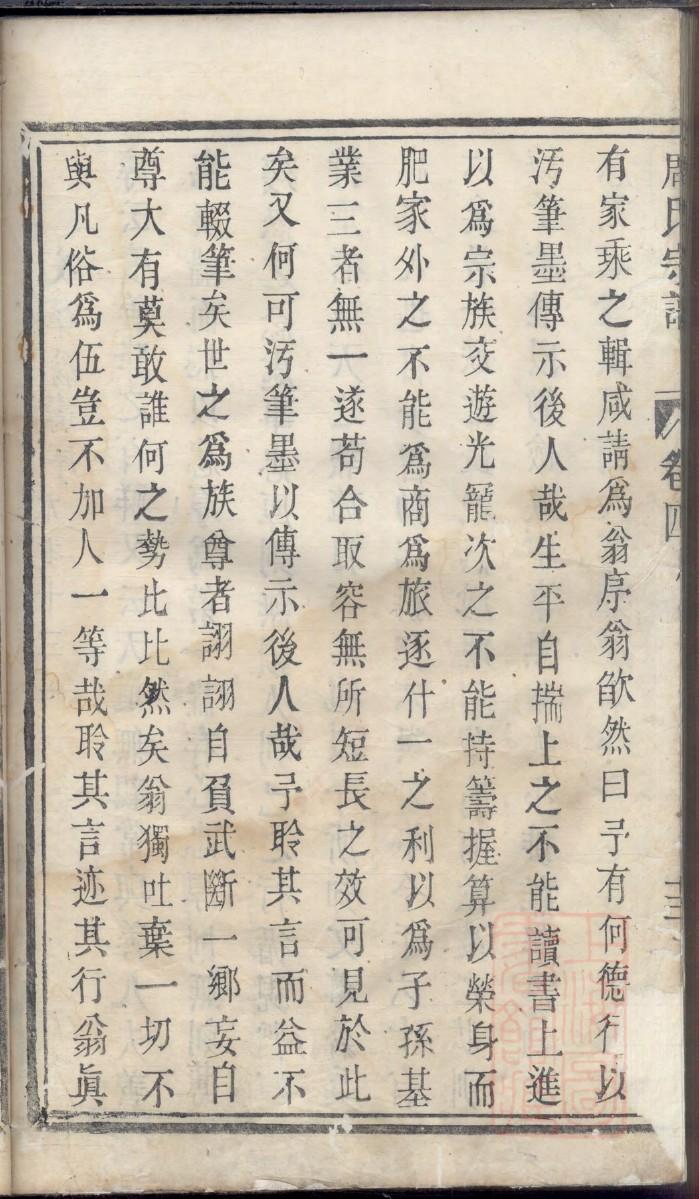 周氏宗譜
卷四
十三
有家乘之輯咸請爲翁序翁欿然曰予有何德行以
汚筆墨傳示後人哉生平自揣上之不能讀書上進
以爲宗族交遊光寵次之不能持籌握算以榮身而
肥家外之不能爲商爲旅逐什一之利以爲子孫基
業三者無一遂苟合取容無所短長之效可見於此
矣又何可汚筆墨以傳示後人哉予聆其言而益不
能輟筆矣世之爲族尊者詡詡自負武斷一鄉妄自
尊大有莫敢誰何之勢比比然矣翁獨吐棄一切不
與凡俗爲伍豈不加人一等哉聆其言迹其行翁眞